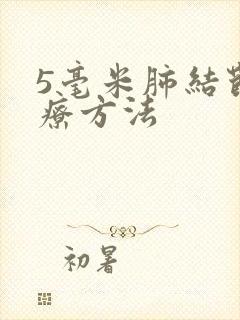 5毫米肺結
療方法
初暑